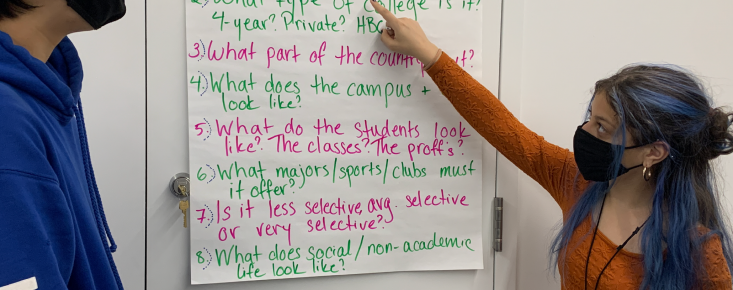 2) What type of College is it?
4-year? Private? HBC
3) What part of the country it?
4) What does the campus +
look like?
5) What do the students look
like? The classes? The proff's?
6) What majors/sports/clubs must
it offer?
7) Is it less selective, avg. selective
or very selective?
8) What does social/non-academic
life look like?